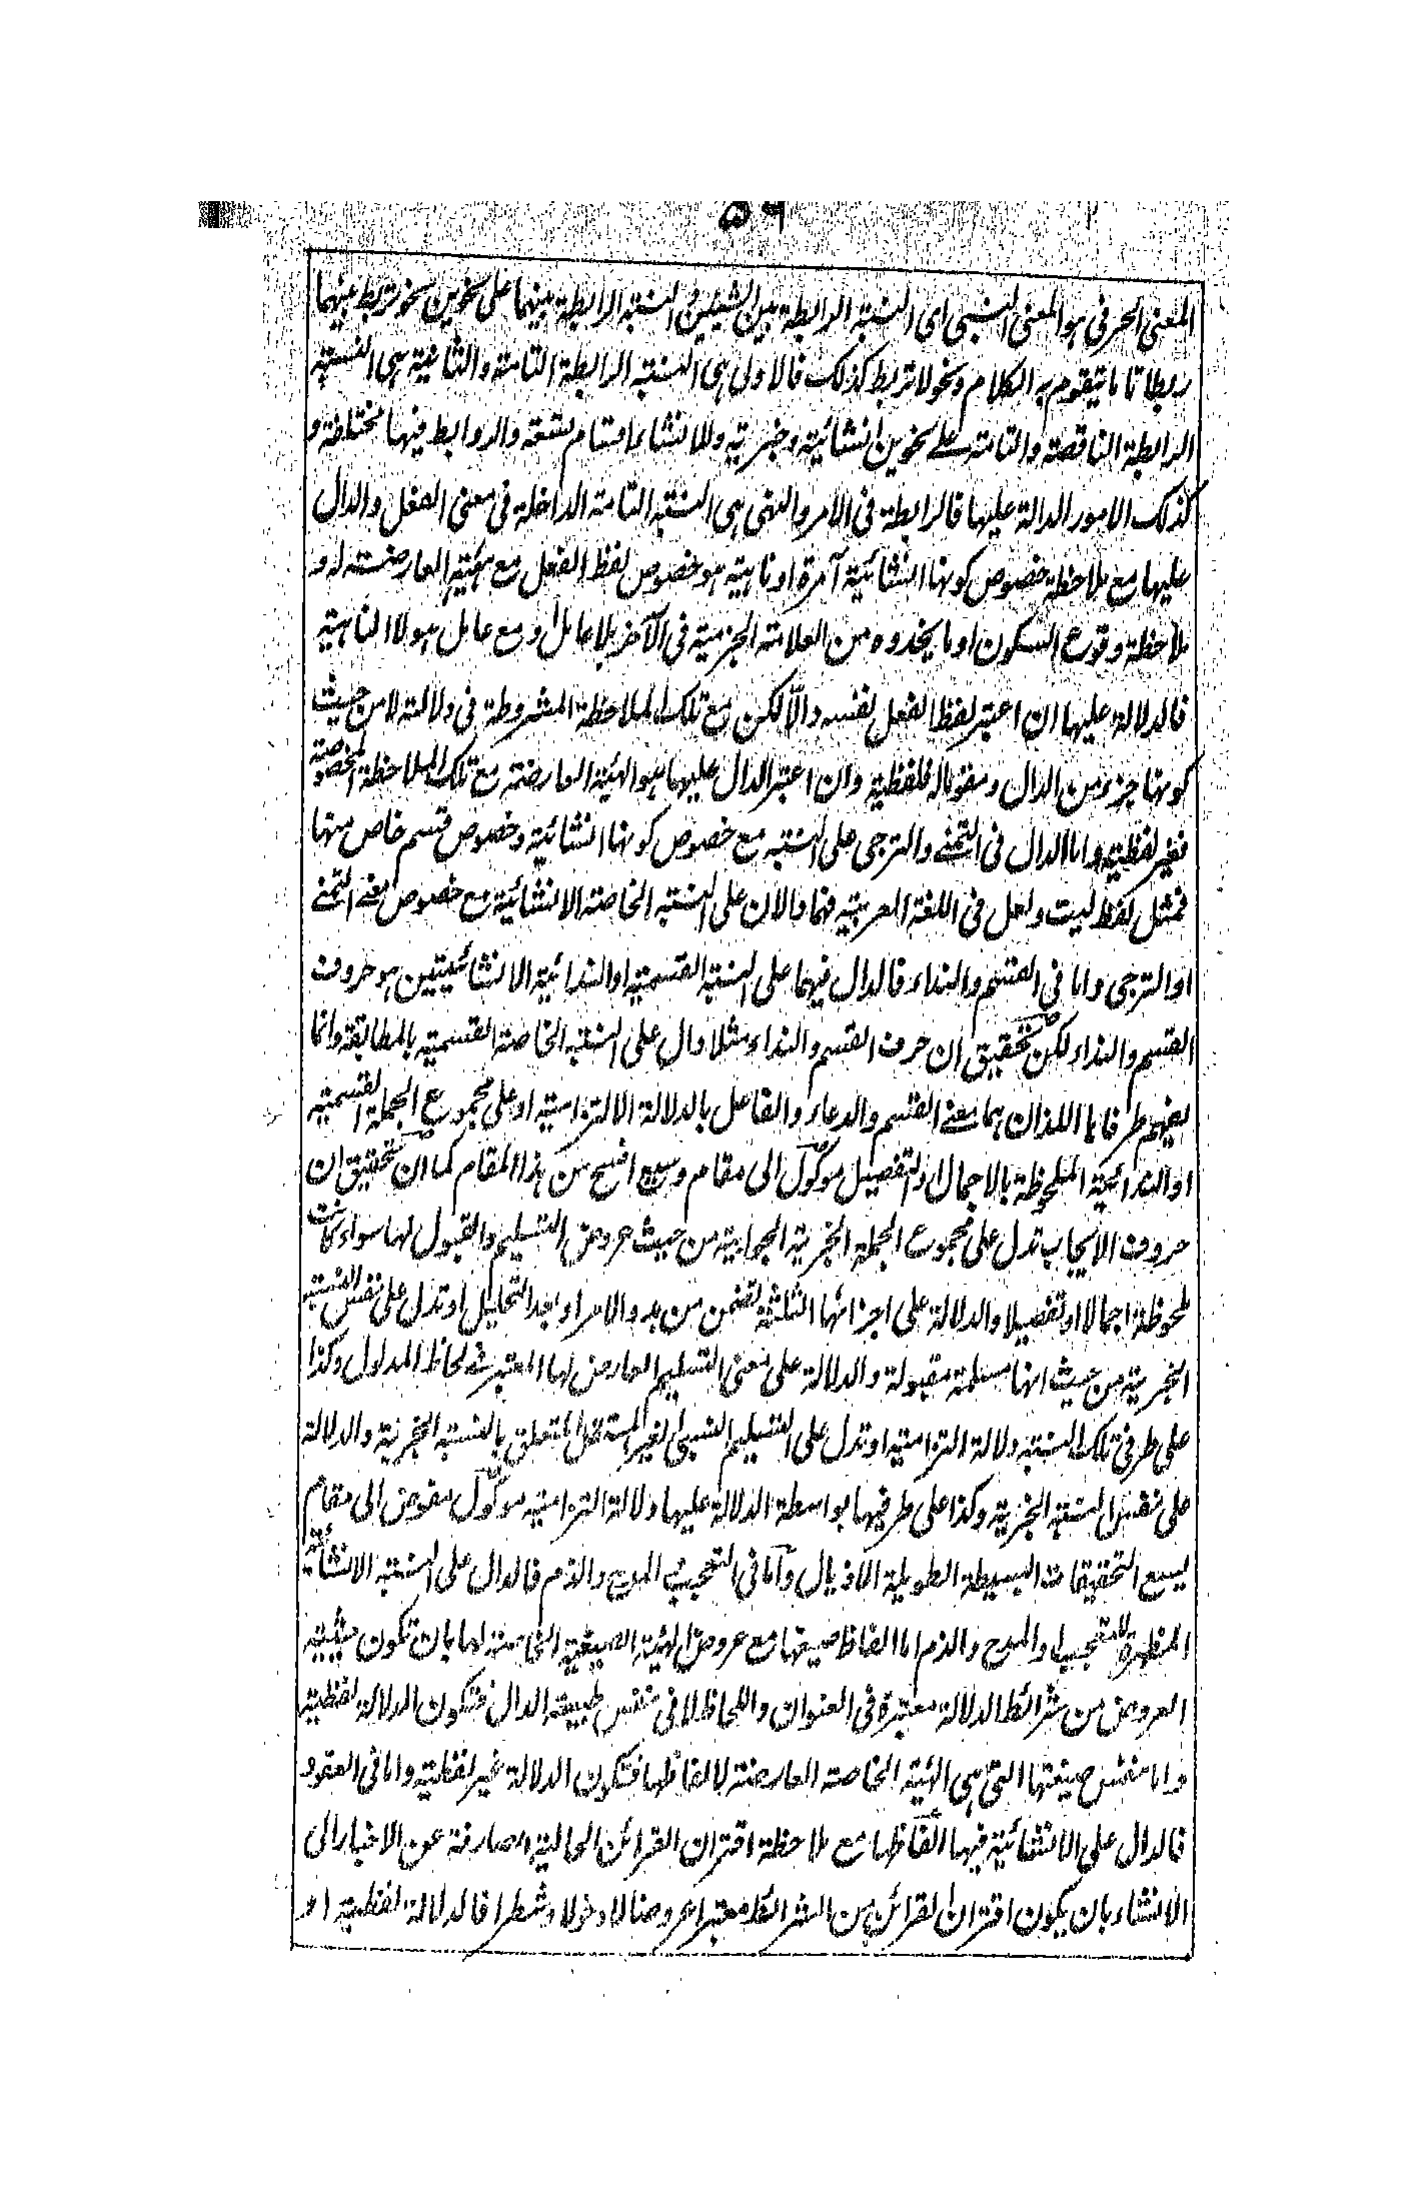 ٥٩
المعنى الحرفى هو المعنى النسبى اى النسبة الرابطة بين الشيئين و النسبة الرابطة بينهما على نحوين نحو تربط بينهما
ربطا تاما يتقوم به الكلام ونحو لا تربط كذلك فالاولى هى النسبة الرابطة التامة والثانية هى النسبة
الرابطة الناقصة والتامة على نحوين انشائية وخبرية وللانشاء اقسام تسعة والروابط فيها مختلفة و
كذلك الامور الدالة عليها فالرابطة فى الامر والنهى هى النسبة التامة الداخلة فى معنى الفعل والدال
عليها مع ملاحظة خصوص كونها انشائية آمرة او ناهية هو خصوص لفظ الفعل مع هيئته العارضة له و
ملاحظة وقوع السكون او ما يحذوه من العلامة الجزمية فى الآخر بلا عامل او مع عامل هو لا الناهية
فالدلالة عليها ان اعتبر لفظ الفعل نفسه دالا لكن مع تلك الملاحظة المشروطة فى دلالته لا من حيث
كونها جزء من الدال ومقوما له فلفظية وان اعتبر الدال عليها هو الهيئة العارضة مع تلك الملاحظة المخصوصة
فغير لفظية واما الدال فى التمنى والترجى على النسبة مع خصوص كونها انشائية وخصوص قسم خاص منها
فمثل لفظ ليت ولعل فى اللغة العربية فهما دالان على النسبة الخاصة الانشائية مع خصوص معنى التمنى
او الترجى واما فى القسم والنداء فالدال فيهما على النسبة القسمية او الندائية الانشائيتين هو حروف
القسم والنداء لكن تحقيق ان حرف القسم والنداء مثلا دال على النسبة الخاصة القسمية بالمطابقة وانما
يفهم طرفاها اللذان هما معنى القسم والدعاء والفاعل بالدلالة الالتزامية او على مجموع الجملة القسمية
او الندائية الملحوظة بالاجمال او التفصيل موكول الى مقام وسيع افسح من هذا المقام كما ان تحقيق ان
حروف الايجاب تدل على مجموع الجملة الخبرية الجوابية من حيث عروض التسليم والقبول لها سواء كانت
ملحوظة اجمالا او تفصيلا والدلالة على اجزائها الثلثة تضمن من بدو الامر او بعد التحليل او تدل على نفس النسبة
الخبرية من حيث انها مسلمة مقبولة والدلالة على معنى التسليم العارض لها المعتبر فى لحاظ المدلول وكذا
على طرفى تلك النسبة دلالة التزامية او تدل على التسليم النسبى الغير المستقل المتعلق بالنسبة الخبرية والدلالة
على نفس النسبة الخبرية وكذا على طرفيها بواسطة الدلالة عليها دلالة التزامية موكول مفوض الى مقام
يسع التحقيقات البسيطة الطويلة الاذيال واما فى التعجب المدح والذم فالدال على النسبة الانشائية
المظهرة للتعجب او المدح والذم اما الفاظ صيغها مع عروض الهيئة الصيغية الخاصة لها بان تكون حيثية
العروض من شرائط الدلالة معتبرة فى العنوان واللحاظ لا فى نفس طبيعة الدال فتكون الدلالة لفظية
واما نفس صيغتها التى هى الهيئة الخاصة العارضة لالفاظها فتكون الدلالة غير لفظية واما فى العقود
فالدال على الانشائية فيها الفاظها مع ملاحظة اقتران القرائن الحالية الصارفة عن الاخبار الى
الانشاء بان يكون اقتران القرائن من الشرائط معتبرا عروضا لا دخولا وشطرا فالدلالة لفظية او